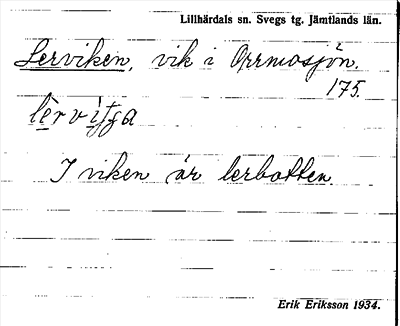 Lillhärdals sn. Svegs tg. Jämtlands län.
Lerviken, vik i Orrmosjön.
175.
lèrvìtga
I viken är lerbotten.
Erik Eriksson 1934.